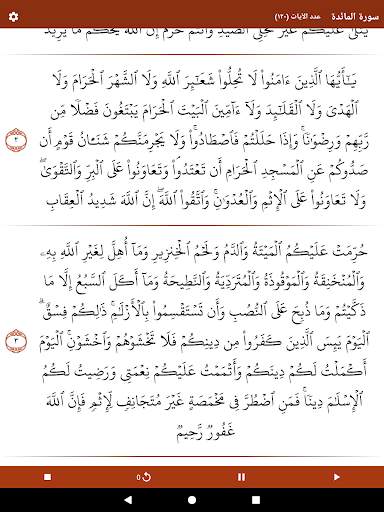 سورة المائدة
عدد الآيات (١٢٠)
يُتْلَىٰ عَلَيْكُمْ غَيْرَ مُحِلِّى ٱلصَّيْدِ وَأَنتُمْ حُرُمٌ إِنَّ ٱللَّهَ يَحْكُمُ مَا يُرِيدُ
يَـٰٓأَيُّهَا ٱلَّذِينَ ءَامَنُوا۟ لَا تُحِلُّوا۟ شَعَـٰٓئِرَ ٱللَّهِ وَلَا ٱلشَّهْرَ ٱلْحَرَامَ وَلَا
ٱلْهَدْىَ وَلَا ٱلْقَلَـٰٓئِدَ وَلَآ ءَآمِّينَ ٱلْبَيْتَ ٱلْحَرَامَ يَبْتَغُونَ فَضْلًا مِّن
رَّبِّهِمْ وَرِضْوَٰنًا ۚ وَإِذَا حَلَلْتُمْ فَٱصْطَادُوا۟ ۚ وَلَا يَجْرِمَنَّكُمْ شَنَـَٔانُ قَوْمٍ أَن
٢
صَدُّوكُمْ عَنِ ٱلْمَسْجِدِ ٱلْحَرَامِ أَن تَعْتَدُوا۟ ۘ وَتَعَاوَنُوا۟ عَلَى ٱلْبِرِّ وَٱلتَّقْوَىٰ ۖ
وَلَا تَعَاوَنُوا۟ عَلَى ٱلْإِثْمِ وَٱلْعُدْوَٰنِ ۚ وَٱتَّقُوا۟ ٱللَّهَ ۖ إِنَّ ٱللَّهَ شَدِيدُ ٱلْعِقَابِ
حُرِّمَتْ عَلَيْكُمُ ٱلْمَيْتَةُ وَٱلدَّمُ وَلَحْمُ ٱلْخِنزِيرِ وَمَآ أُهِلَّ لِغَيْرِ ٱللَّهِ بِهِۦ
وَٱلْمُنْخَنِقَةُ وَٱلْمَوْقُوذَةُ وَٱلْمُتَرَدِّيَةُ وَٱلنَّطِيحَةُ وَمَآ أَكَلَ ٱلسَّبُعُ إِلَّا مَا
ذَكَّيْتُمْ وَمَا ذُبِحَ عَلَى ٱلنُّصُبِ وَأَن تَسْتَقْسِمُوا۟ بِٱلْأَزْلَـٰمِ ۚ ذَٰلِكُمْ فِسْقٌ ۗ
ٱلْيَوْمَ يَئِسَ ٱلَّذِينَ كَفَرُوا۟ مِن دِينِكُمْ فَلَا تَخْشَوْهُمْ وَٱخْشَوْنِ ۚ ٱلْيَوْمَ
٣
أَكْمَلْتُ لَكُمْ دِينَكُمْ وَأَتْمَمْتُ عَلَيْكُمْ نِعْمَتِى وَرَضِيتُ لَكُمُ
ٱلْإِسْلَـٰمَ دِينًا ۚ فَمَنِ ٱضْطُرَّ فِى مَخْمَصَةٍ غَيْرَ مُتَجَانِفٍ لِّإِثْمٍ ۙ فَإِنَّ ٱللَّهَ
غَفُورٌ رَّحِيمٌ
٥